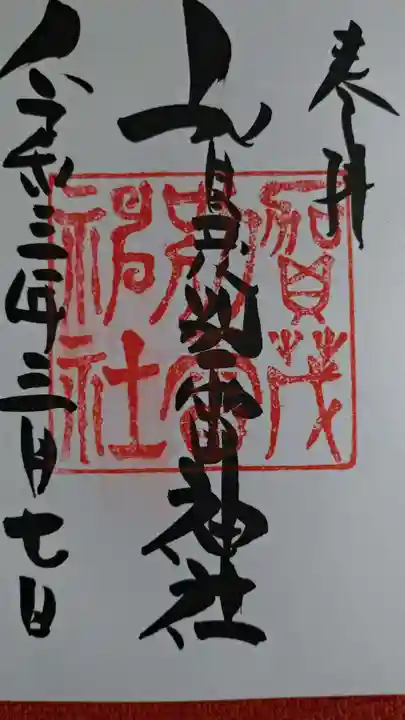 奉拝
賀茂別雷神社
令和三年三月七日
賀茂
別雷
神社